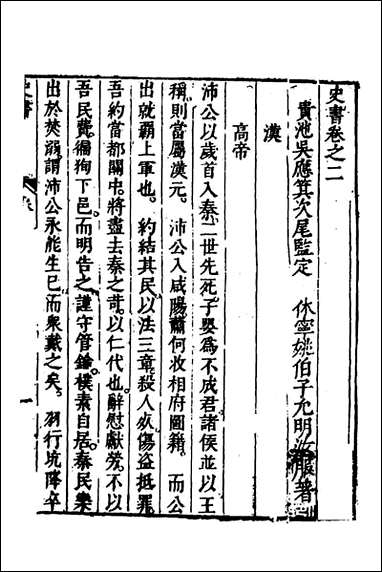 史書卷之二
貴池吳應箕次尾監定 休寧姚伯子允明 服著
漢
高帝
沛公以歲首入秦二世先死子嬰爲不成君諸侯並以王
稱則當屬漢元。 沛公入咸陽蕭何收相府圖籍。 而公
出就覇上軍也。 約結其民以法三章。殺人死傷盗抵罪。
吾約當都關中。將盡去秦之苛。以仁代也。辭慰獻勞。不以
吾民費。徧狥下邑。而明告之。謹守管鑰。樸素自居。秦民樂
出於焚溺。謂沛公永能生已。而衆戴之矣。 羽行坑降卒
史書
一